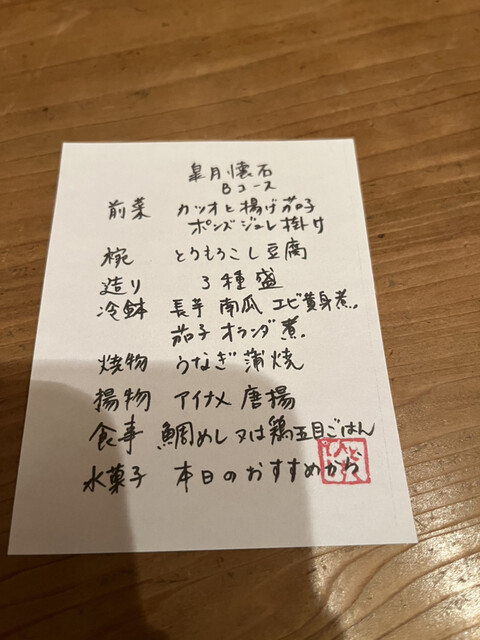 皐月懐石
Bコース
前菜 カツオと揚げ茄子
ポンズジュレ掛け
椀 とうもろこし豆腐
造り 3種盛
冷鉢 長芋 南瓜 エビ黄身煮
茄子オランダ煮
焼物 うなぎ蒲焼
揚物 アイナメ唐揚
食事 鯛めし又は鶏五目ごはん
水菓子 本日のおすすめから